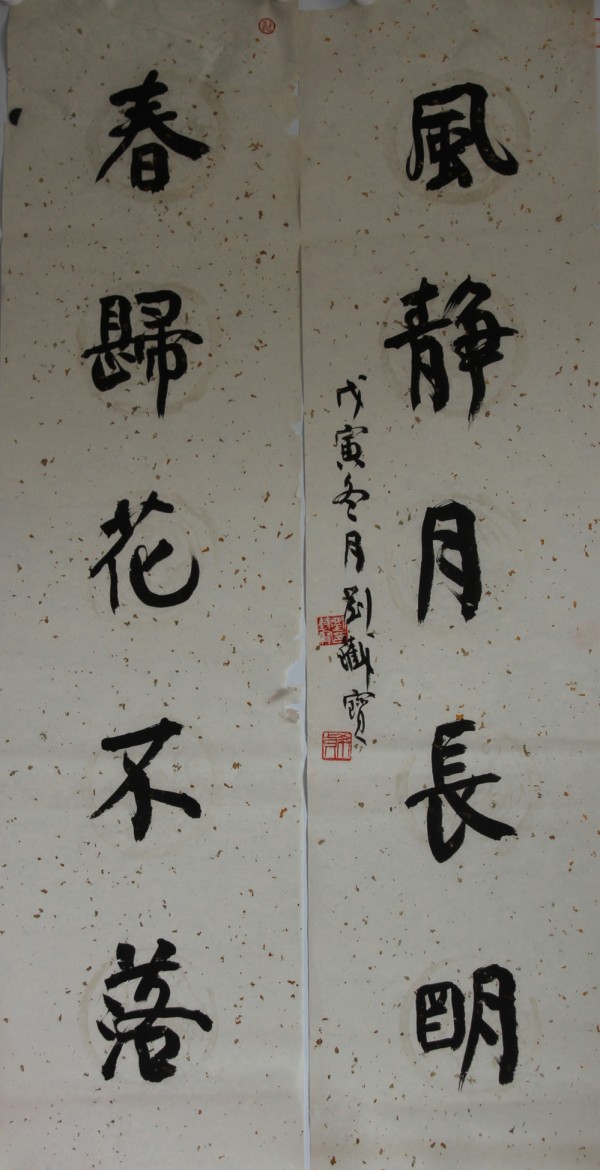 春歸花不落
風靜月長明
戊寅冬月劉寶